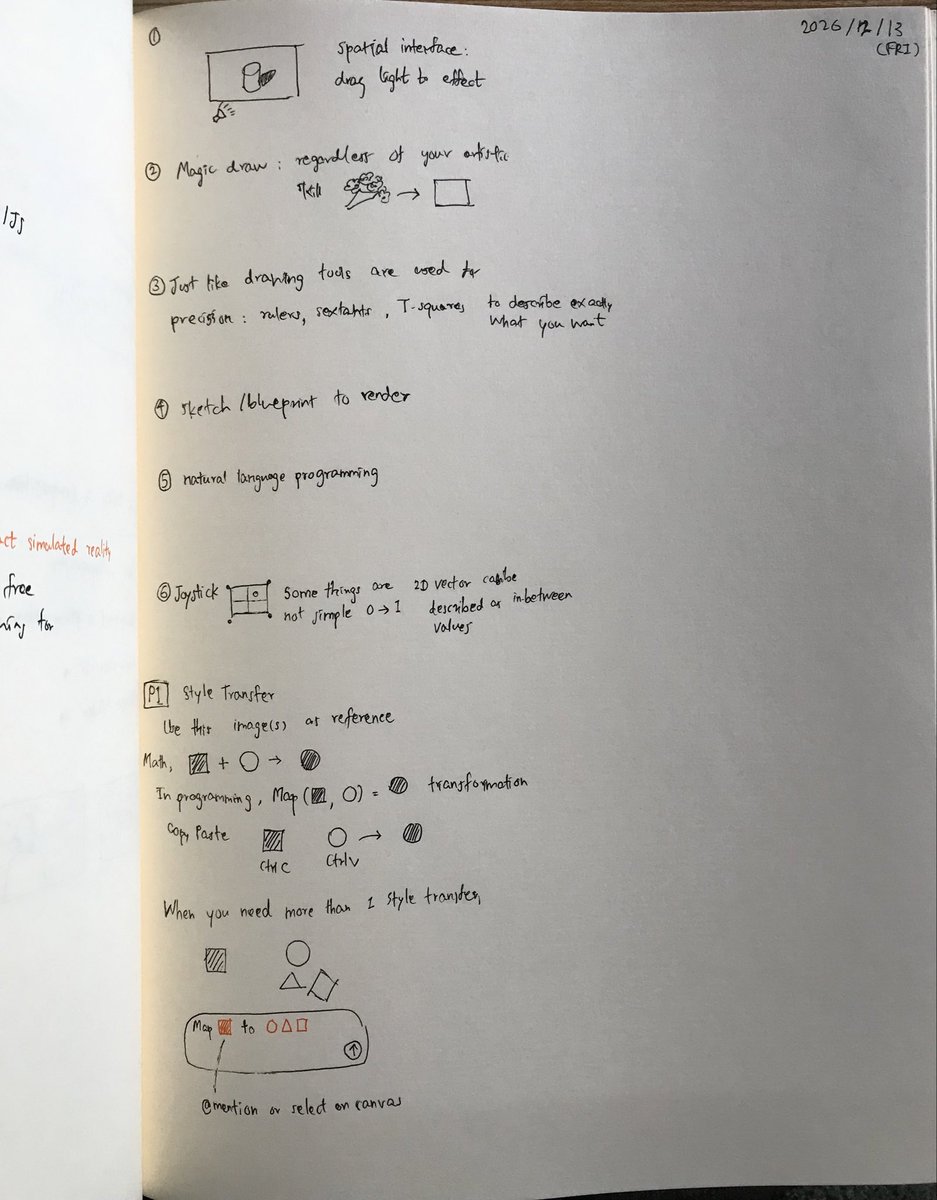 2026/12/13
(FRI)
①
Spatial interface:
drag light to effect
② Magic draw: regardless of your artistic
skill
③ Just like drawing tools are used for
precision: rulers, sextants, T-squares to describe exactly
what you want
④ sketch/blueprint to render
⑤ natural language programming
⑥ Joystick Some things are 2D vector can be
not simple 0→1 described as in-between
values
P1 Style Transfer
Use this image(s) as reference
Math, + →
In programming, Map( , ) = transformation
Copy Paste →
Ctrl C Ctrl V
When you need more than 1 style transfer,
Map to
@mention or select on canvas
/JJ
simulated reality
free
for